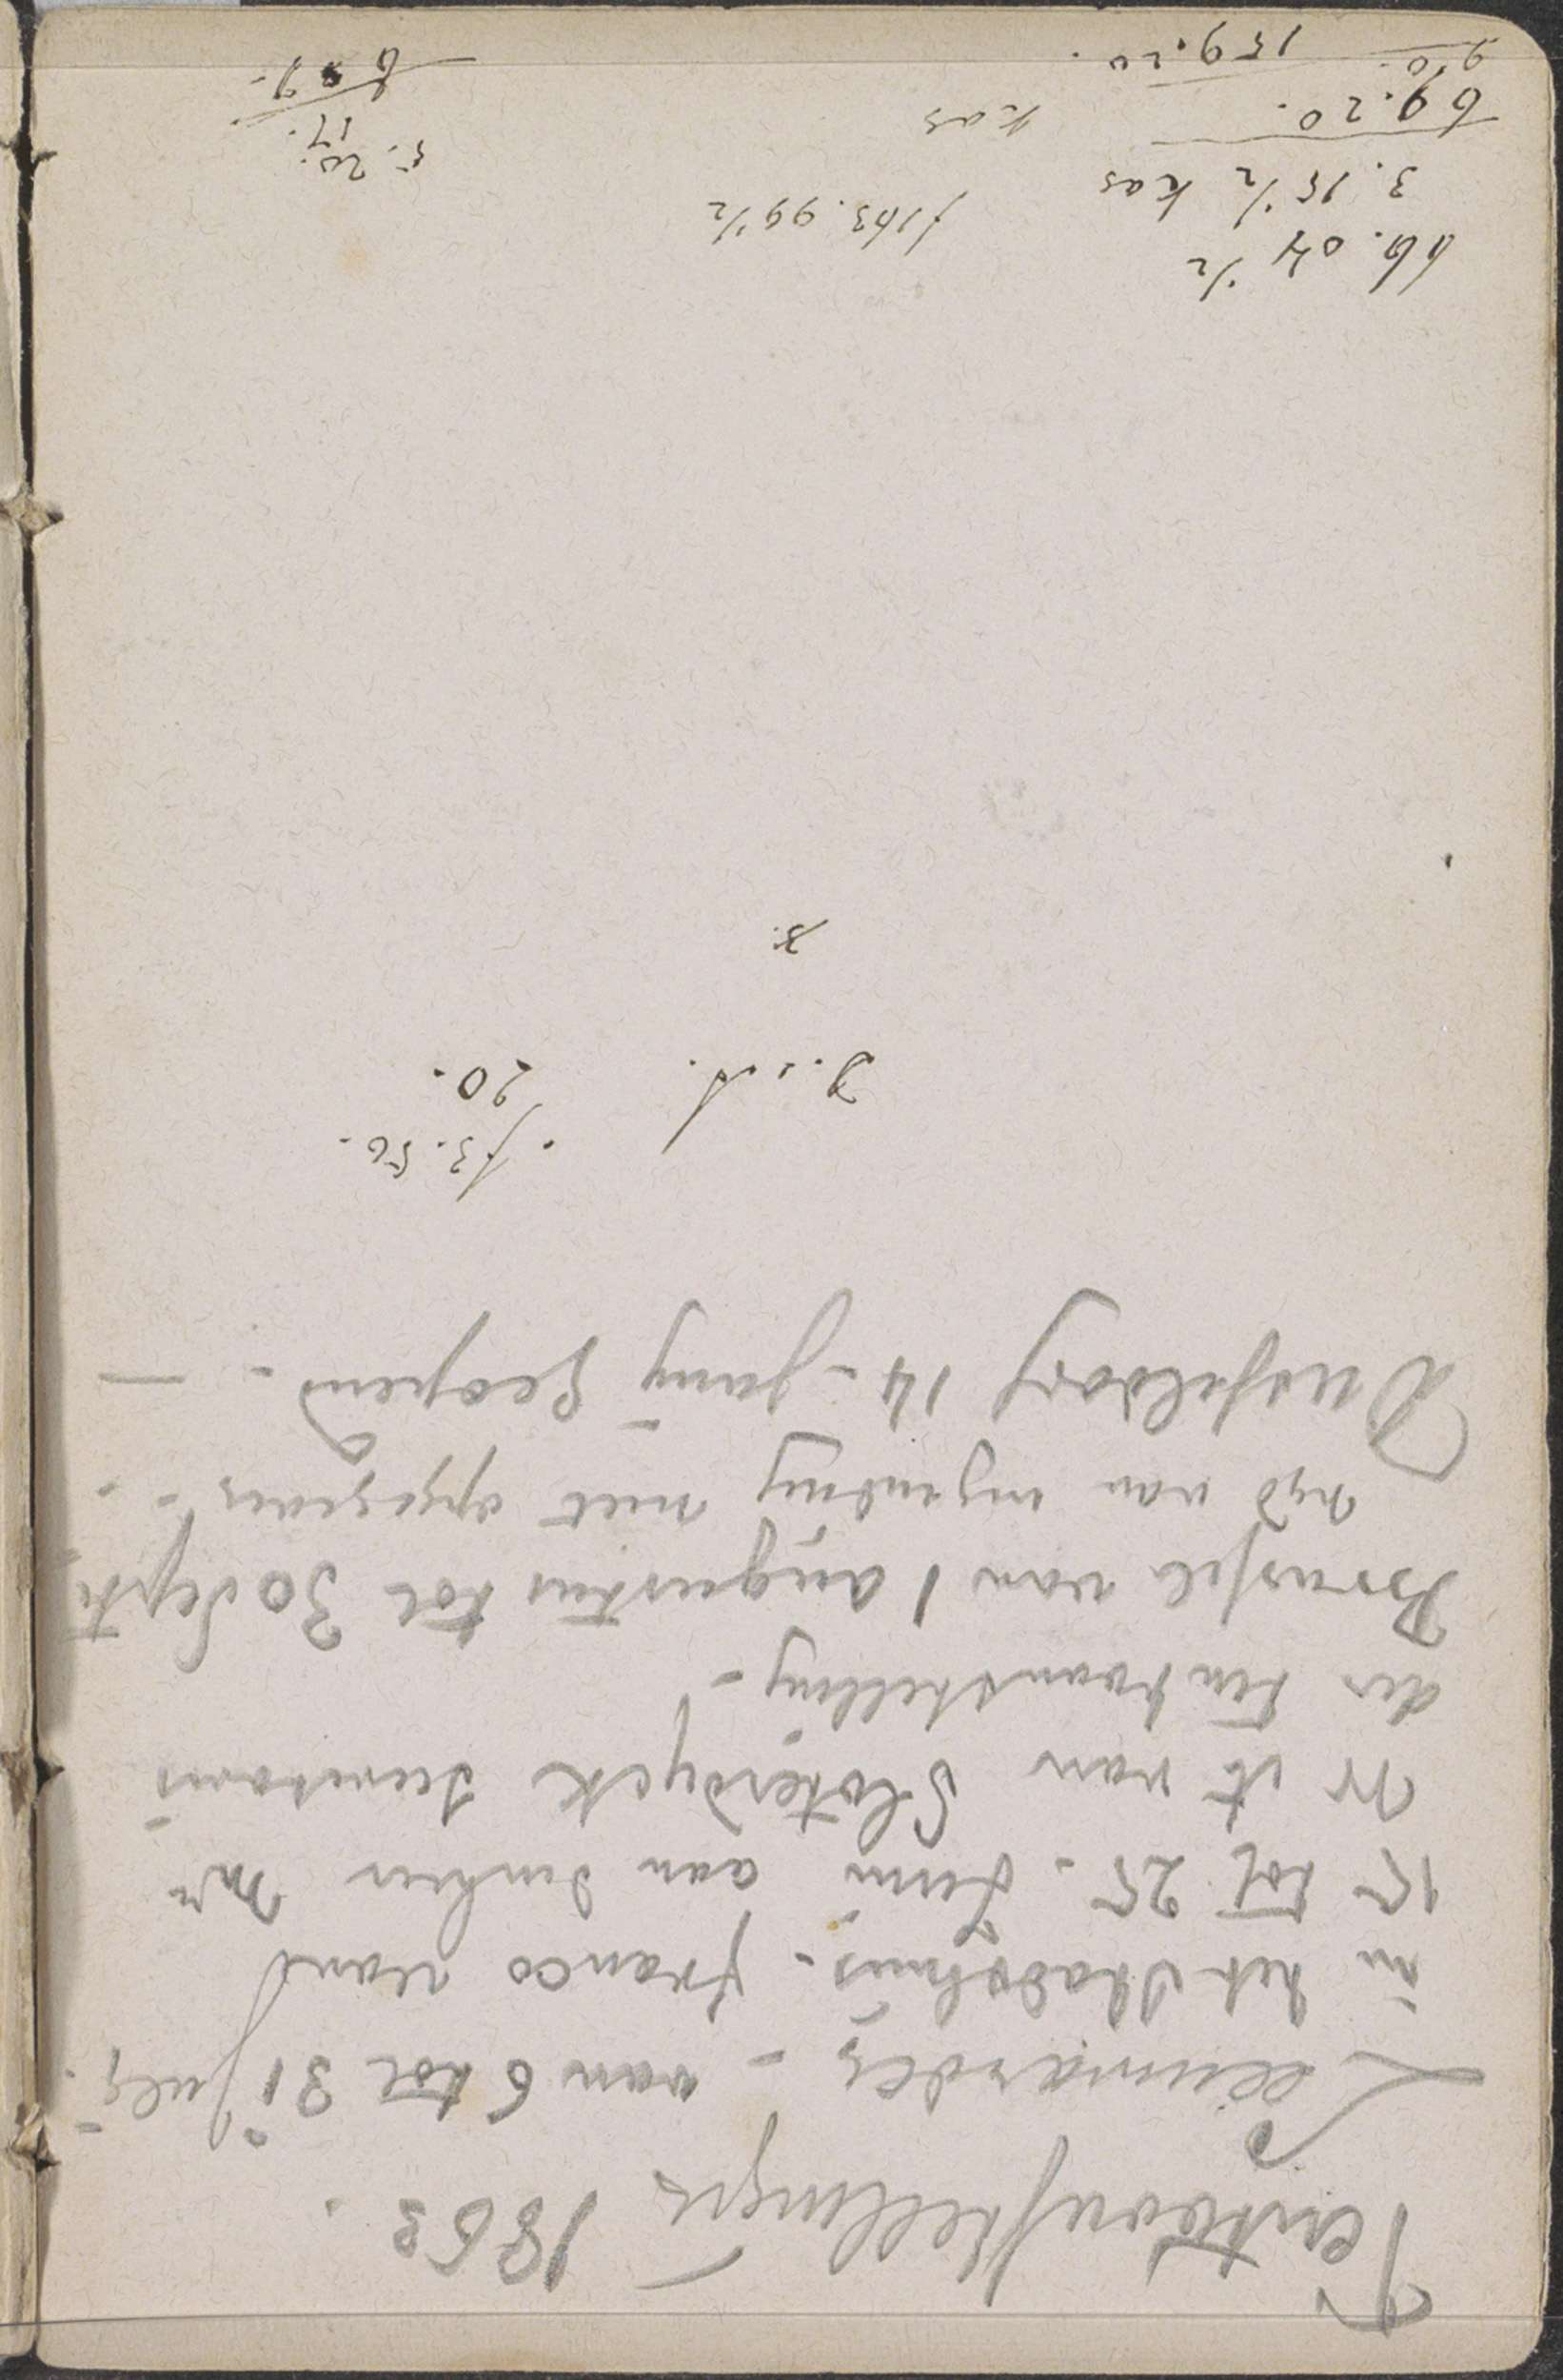 Tentoonstellingen 1863.
Leeuwarden - van 6 tot 31 july.
in het Stadshuis - franco
15 tot 25 - Juni aan den heer Mr
W. A. van Sloterdyck Secretaris
der tentoonstelling -
Brussel van 1 augustus tot 30 Septr
tyd van inzending niet opgegeven - .
Dusseldorf 14 - Juny geopend - . —
f 3.50.
20.
8.
66.04 1/2
3.15 1/2 kas
69.20.
90.
159.20.
f 163.99 1/2
kas
5.20.
17.